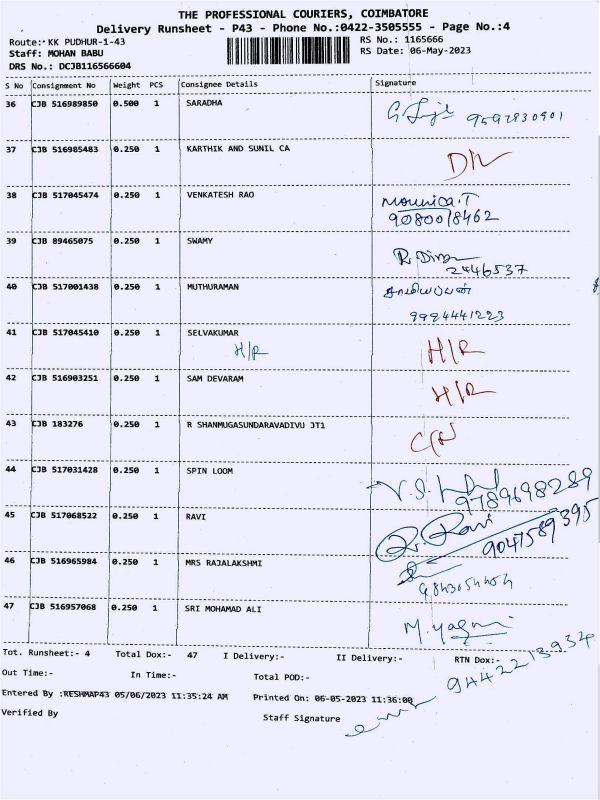 THE PROFESSIONAL COURIERS, COIMBATORE
Delivery Runsheet - P43 - Phone No.:0422-3505555 - Page No.:4
Route:- KK PUDHUR-1-43
RS No.: 1165666
Staff: MOHAN BABU
RS Date: 06-May-2023
DRS No.: DCJB116566604
S No Consignment No Weight PCS Consignee Details Signature
36 CJB 516989850 0.500 1 SARADHA
9592830901
37 CJB 516985483 0.250 1 KARTHIK AND SUNIL CA
D/L
38 CJB 517045474 0.250 1 VENKATESH RAO Mounica.T
9080018462
39 CJB 89465075 0.250 1 SWAMY
2446537
40 CJB 517001438 0.250 1 MUTHURAMAN
9994441223
41 CJB 517045410 0.250 1 SELVAKUMAR
H/R H/R
42 CJB 516903251 0.250 1 SAM DEVARAM
H/R
43 CJB 183276 0.250 1 R SHANMUGASUNDARAVADIVU JT1
44 CJB 517031428 0.250 1 SPIN LOOM
9789698289
45 CJB 517068522 0.250 1 RAVI R. Ravi
9041589395
46 CJB 516965984 0.250 1 MRS RAJALAKSHMI
47 CJB 516957068 0.250 1 SRI MOHAMAD ALI
Tot. Runsheet:- 4 Total Dox:- 47 I Delivery:- II Delivery:- RTN Dox:-
9442213934
Out Time:- In Time:- Total POD:-
Entered By :RESHMAP43 05/06/2023 11:35:24 AM Printed On: 06-05-2023 11:36:00
Verified By Staff Signature